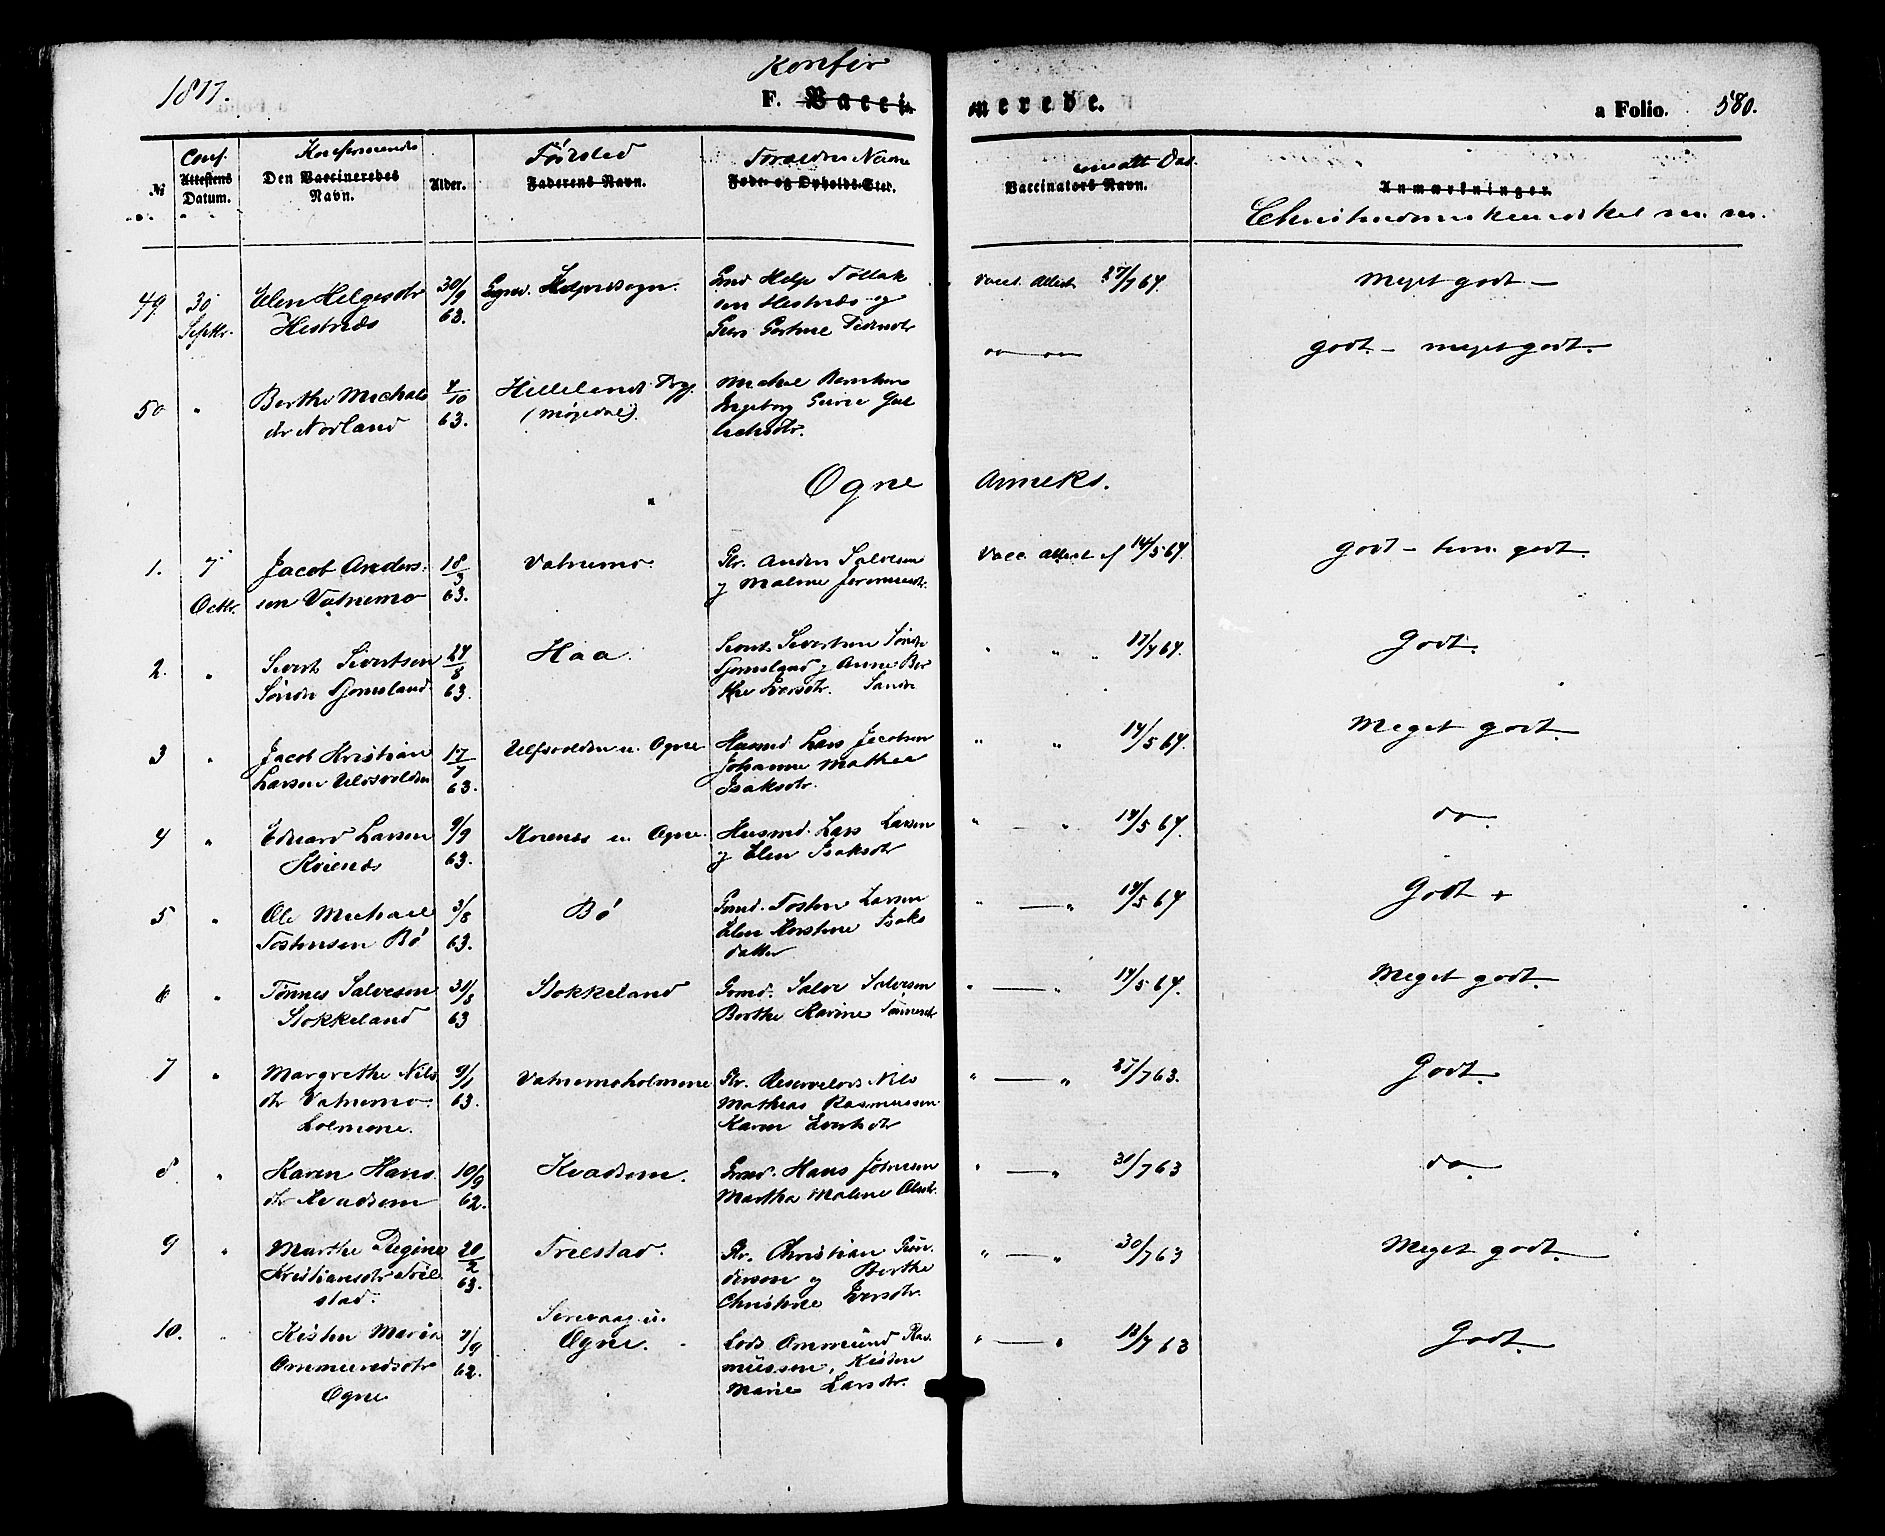 1877.
Konfir
F. Vacci
nerede.
a Folio. 580.
No
Conf.
Attestens
Datum.
Konfirmandens
Den Vaccineredes
Navn.
Alder.
Fødested
Faderens Navn.
Forældres Navne
Føde- og Opholds-Sted.
Vaccinators Navn.
Anmærkninger.
Christendomskundskab m. m.
49
30
Septbr.
Elen Helgesdtr
Hestnes
30/9
63.
Gmd Helje Tollak
sen Hestnes og
Vacc. Attest 27/9 64.
Meget godt
50
"
Berthe Michals
dtr Nodland
4/10
63.
Hellelands Prgj.
godt - meget godt.
Ogne
Anneks.
1.
7
Octbr.
Jacob Anders
sen Vatnemo
18/3
63.
Vatnemo.
Gr. Anders Salvesen
g Malene
Vacc. Attest af 14/5 64.
godt - tem. godt.
2.
"
Sivert Sivertsen
Søndr Tjomsland
24/8
63.
Haa.
Sivertsen Søndr
Tjomsland g Anne Ber
the
" " " 17/4 64.
Godt.
3
"
Jacob Kristian
Larsen Ulvsvolden
17/7
63.
Ulfsvolden u. Ogne
Husmd. Lars Jacobsen
Johanne Mathea
Isaksdtr.
" " 14/5 64.
Meget godt.
4
"
Eduard Larsen
Kvienes
9/9
63.
u Ogne.
Husmd. Lars Larsen
g Elen Isaksdtr
" " 14/5 64.
do.
5
"
Ole Michael
Tostensen Bø
3/8
63.
Bø
Gmd. Tosten Larsen
Elen Kirstine Isaks
datter
" " 14/5 64
Godt +
6
"
Tønnes Salvesen
Stokkeland
31/8
63
Stokkeland
Gmd. Salve Salvesen
Berthe Karine Tønnesdtr
" " 14/5 64.
Meget godt.
7
"
Margrethe Nils
dtr Vatnemo
holmene.
9/1
63.
Vatnemoholmene
Gr. Reservelods Nils
Mathias Rasmussen
Karen
" " 27/7 63.
Godt.
8.
"
Karen Hans
dtr Kvadsem
10/9
62.
Kvadsem.
Gmd. Hans Johnsen
Martha Malene Olsdtr.
" " 30/7 63
do
9
"
Marthe Regine
Kristiansdtr Trel
stad.
20/2
63.
Trelstad.
Gr. Christian Gun
dersen g Berthe
Christine Iversdtr.
" " 30/7 63
Meget godt.
10.
"
Kisten Maria
Ommundsdtr
Ogne
7/9
62.
Sirevaag u.
Ogne.
Lods Ommund Ras
mussen, Kisten
Marie Larsdtr.
" " 18/7 63
Godt.